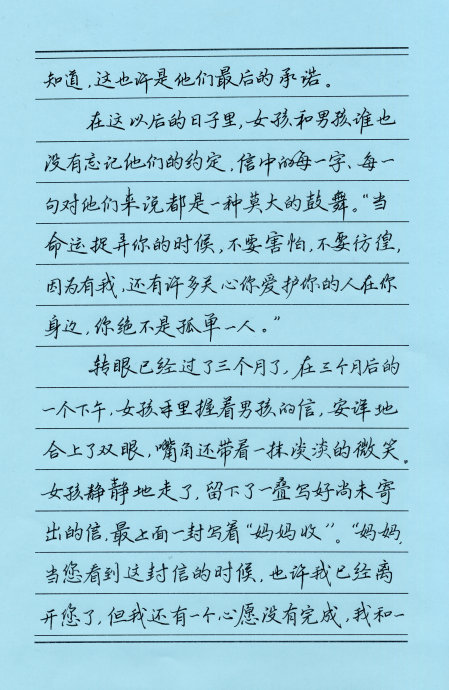 知道，这也许是他们最后的承诺。
在这以后的日子里，女孩和男孩谁也
没有忘记他们的约定，信中的每一字、每一
句对他们来说都是一种莫大的鼓舞。“当
命运捉弄你的时候，不要害怕，不要彷徨，
因为有我，还有许多关心你爱护你的人在你
身边，你绝不是孤单一人。”
转眼已经过了三个月了，在三个月后的
一个下午，女孩手里握着男孩的信，安详地
合上了双眼，嘴角还带着一抹淡淡的微笑。
女孩静静地走了，留下了一叠写好尚未寄
出的信，最上面一封写着“妈妈收”。“妈妈，
当您看到这封信的时候，也许我已经离
开您了，但我还有一个心愿没有完成，我和一